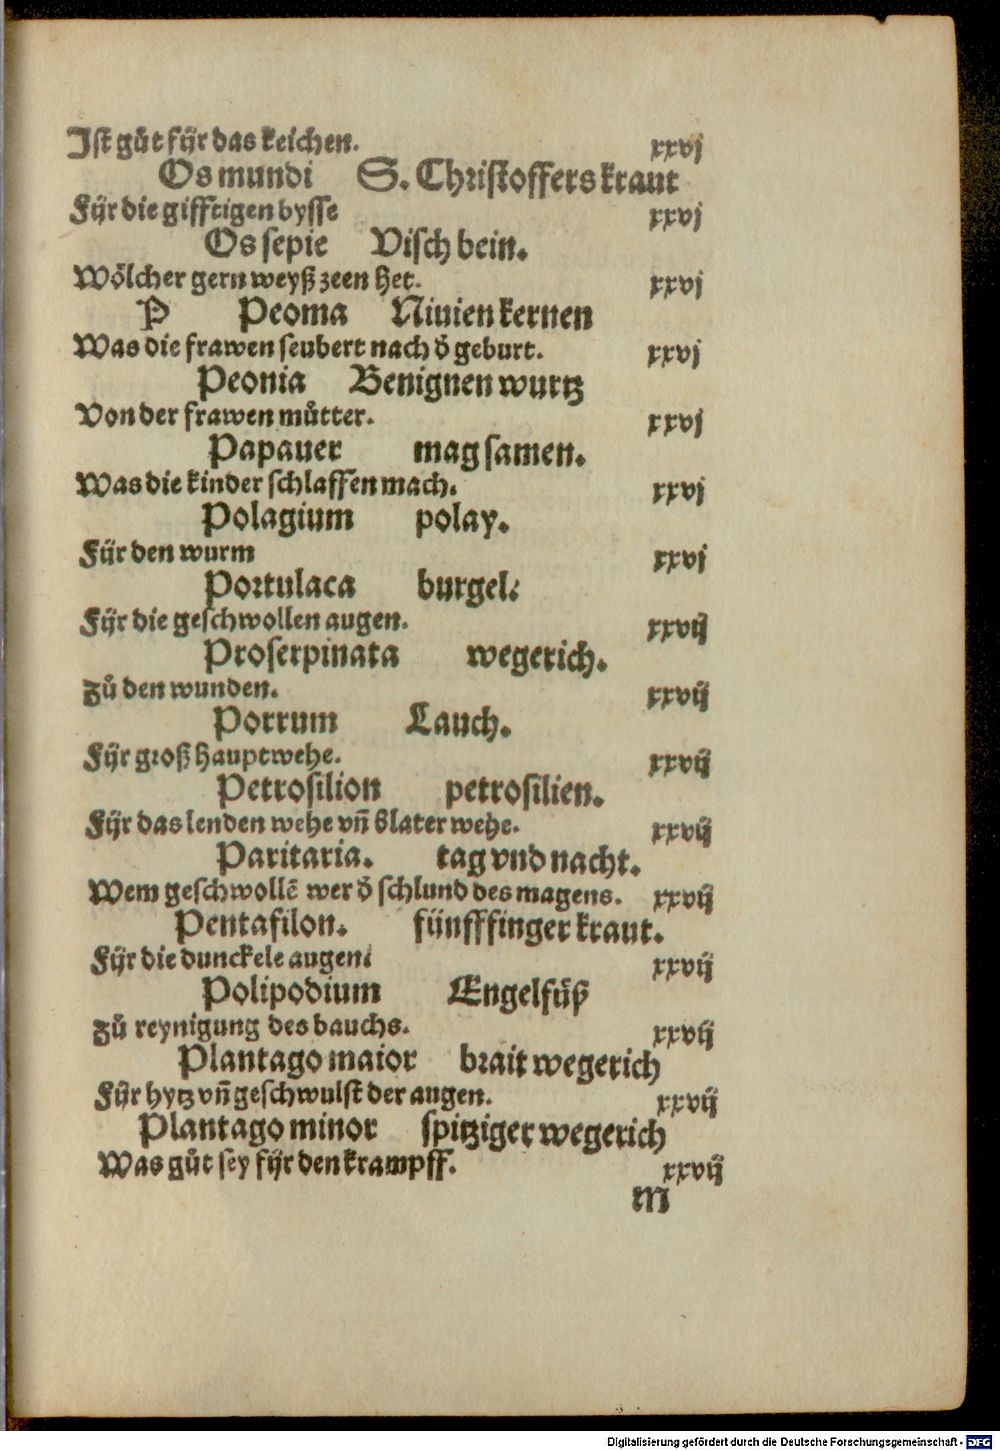 Ist gůt für das keichen. xxvj
Os mundi S. Christoffers kraut
Für die gifftigen bysse xxvj
Os sepie Visch bein.
Wölcher gern weyß zeen het. xxvj
P Peoma Niuien kernen
Was die frawen seubert nach d̕ geburt. xxvj
Peonia Benignen wurtz
Von der frawen můtter. xxvj
Papauer mag samen.
Was die kinder schlaffen mach. xxvj
Polagium polay.
Für den wurm xxvj
Portulaca burgel:
Für die geschwollen augen. xxvij
Proserpinata wegerich.
Zů den wunden. xxvij
Porrum Lauch.
Für groß hauptwehe. xxvij
Petrosilion petrosilien.
Für das lenden wehe vñ blater wehe. xxvij
Paritaria. tag vnd nacht.
Wem geschwollē wer d̕ schlund des magens. xxvij
Pentafilon. fünfffinger kraut.
Für die dunckele augen: xxvij
Polipodium Engelfůß
Zů reynigung des bauchs. xxvij
Plantago maior brait wegerich
Für hytz vñ geschwulst der augen. xxvij
Plantago minor spitziger wegerich
Was gůt sey für den krampff. xxvij
m
Digitalisierung gefördert durch die Deutsche Forschungsgemeinschaft - DFG